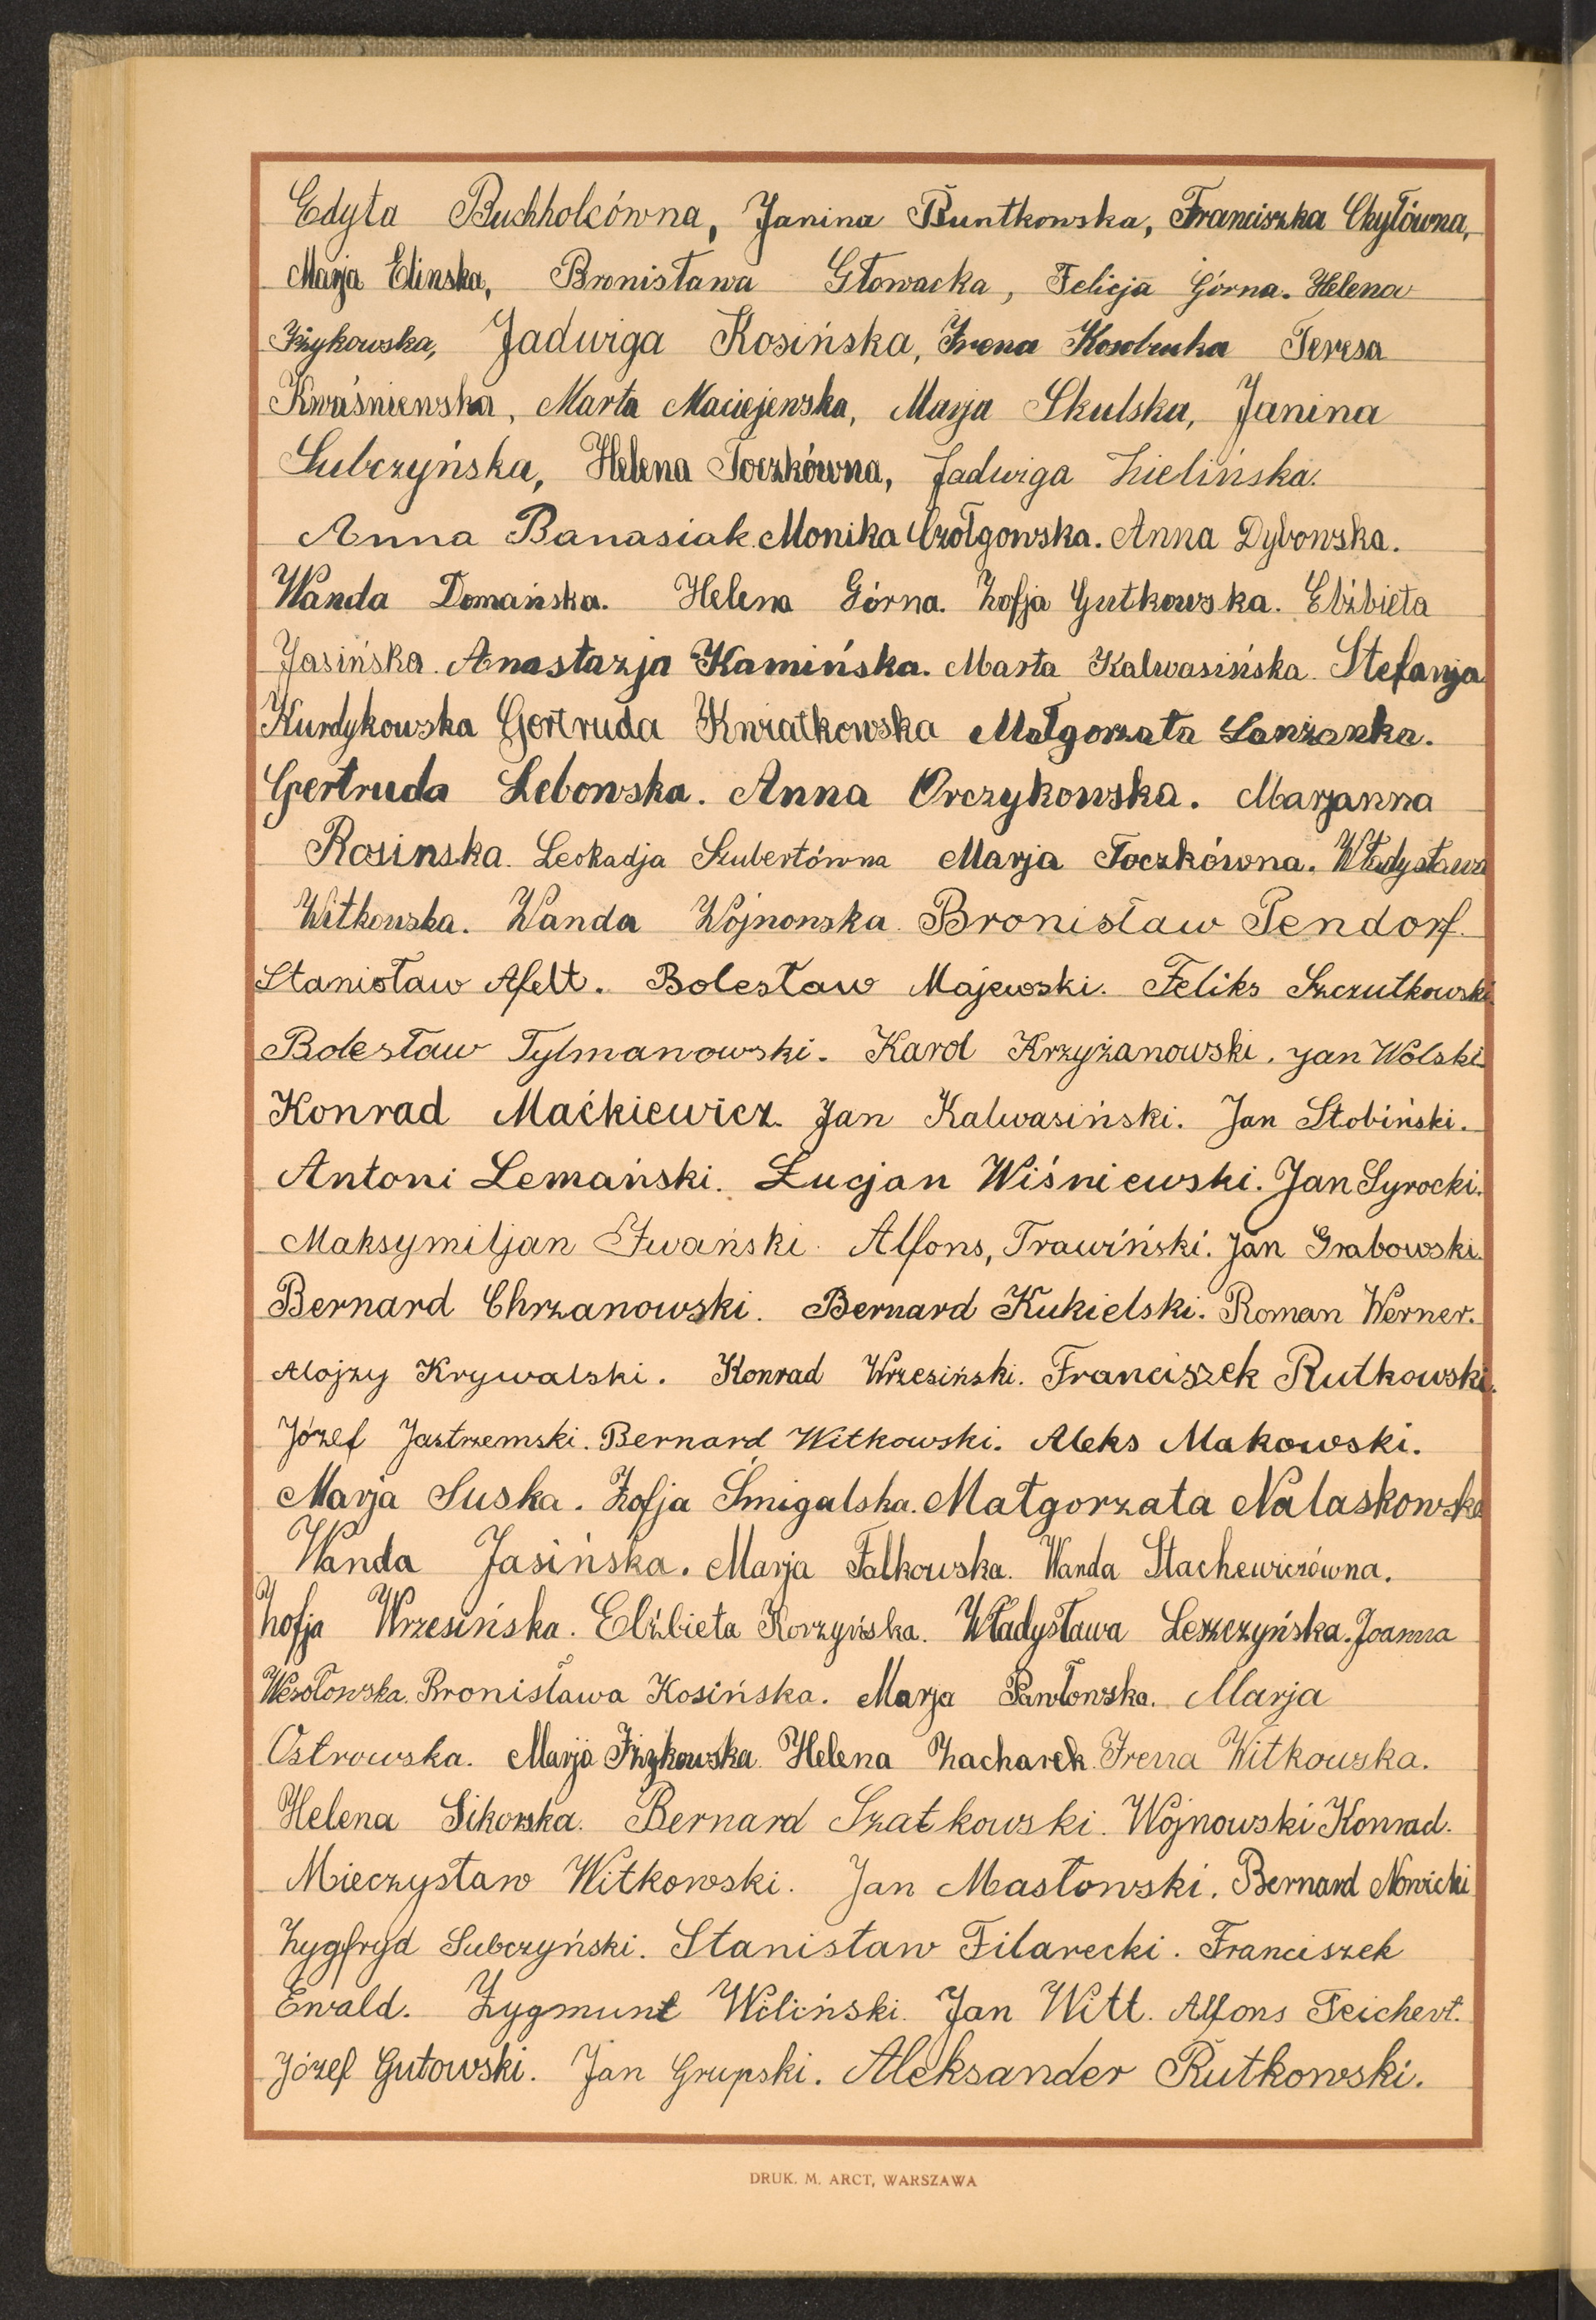 Edyta Buchholcówna, Janina Buntkowska, Franciszka Chyłówna,
Marja Elinska, Bronisława Głowacka, Felicja Górna. Helena
Iżykowska, Jadwiga Kosińska, Irena Kosobucka Teresa
Kwaśniewska, Marta Maciejewska, Marja Skulska, Janina
Subczyńska, Helena Toczkówna, Jadwiga Zielińska.
Anna Banasiak. Monika Czołgowska. Anna Dybowska.
Wanda Domańska. Helena Górna. Zofja Gutkowska. Elżbieta
Jasińska. Anastazja Kamińska. Marta Kalwasińska. Stefanja
Kurdykowska Gertruda Kwiatkowska Małgorzata Lanżanka.
Gertruda Lebowska. Anna Orczykowska. Marjanna
Rosinska. Leokadja Szubertówna Marja Toczkówna. Władysława
Witkowska. Wanda Wojnowska. Bronisław Pendorf.
Stanisław Afelt. Bolesław Majewski. Feliks Szczutkowski.
Bolesław Tylmanowski. Karol Krzyżanowski. Jan Wolski.
Konrad Maćkiewicz. Jan Kalwasiński. Jan Stobiński.
Antoni Lemański. Lucjan Wiśniewski. Jan Syrocki.
Maksymiljan Iwański. Alfons, Trawiński. Jan Grabowski.
Bernard Chrzanowski. Bernard Kukielski. Roman Werner.
Alojzy Krywalski. Konrad Wrzesiński. Franciszek Rutkowski.
Józef Jastrzemski. Bernard Witkowski. Aleks Makowski.
Marja Suska. Zofja Śmigalska. Małgorzata Nalaskowska
Wanda Jasińska. Marja Falkowska. Wanda Stachewiczówna.
Zofja Wrzesińska. Elżbieta Korzyńska. Władysława Leszczyńska. Joanna
Wesołowska. Bronisława Kosińska. Marja Pawłowska. Marja
Ostrowska. Marja Iżykowska. Helena Zacharek. Irena Witkowska.
Helena Sikorska. Bernard Szatkowski. Wojnowski Konrad.
Mieczysław Witkowski. Jan Masłowski. Bernard Nowicki
Zygfryd Subczyński. Stanisław Filarecki. Franciszek
Ewald. Zygmunt Wiliński. Jan Witt. Alfons Teichert.
Józef Gutowski. Jan Grupski. Aleksander Rutkowski.
DRUK. M. ARCT, WARSZAWA